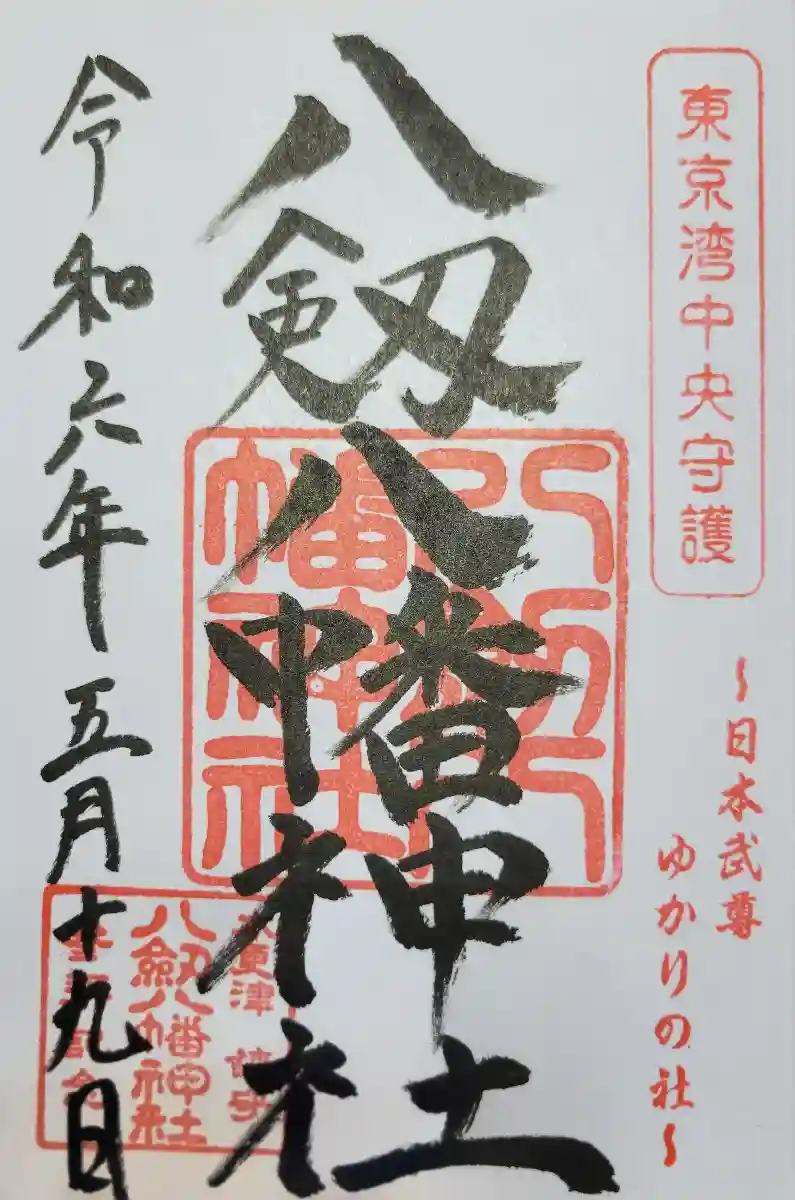 東京湾中央守護
~日本武尊
ゆかりの社~
八剱八幡神社
八剱八幡神社
木更津 鎮守
八剱八幡神社
参拝記念
令和六年五月十九日